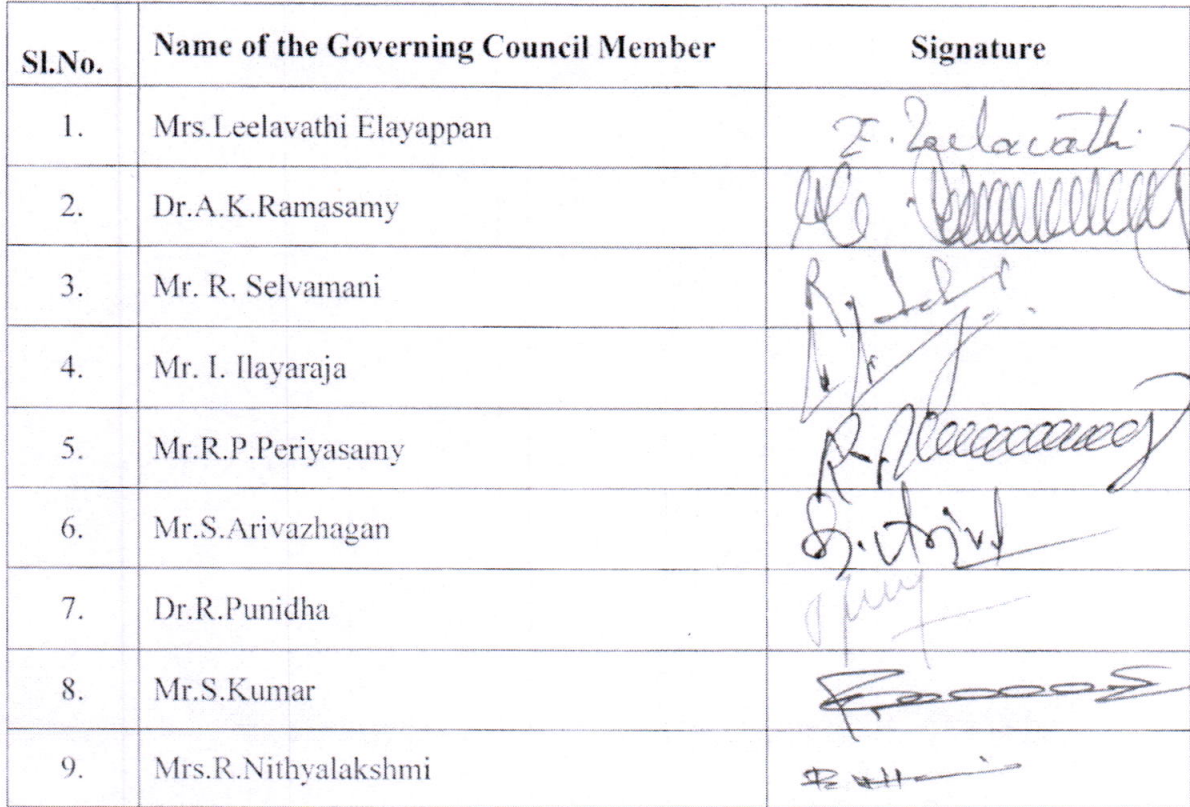 Sl.No. Name of the Governing Council Member Signature
1. Mrs.Leelavathi Elayappan E. Leelavathi
2. Dr.A.K.Ramasamy
3. Mr. R. Selvamani
4. Mr. I. Ilayaraja
5. Mr.R.P.Periyasamy
6. Mr.S.Arivazhagan
7. Dr.R.Punidha
8. Mr.S.Kumar
9. Mrs.R.Nithyalakshmi